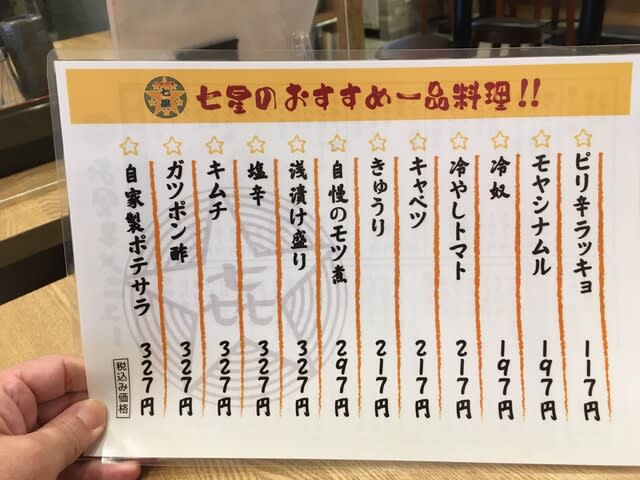 七星
七星のおすすめ一品料理!!
ピリ辛ラッキョ 117円
モヤシナムル 197円
冷奴 197円
冷やしトマト 217円
キャベツ 217円
きゅうり 217円
自慢のモツ煮 297円
浅漬け盛り 327円
塩辛 327円
キムチ 327円
ガツポン酢 327円
自家製ポテサラ 327円
税込み価格